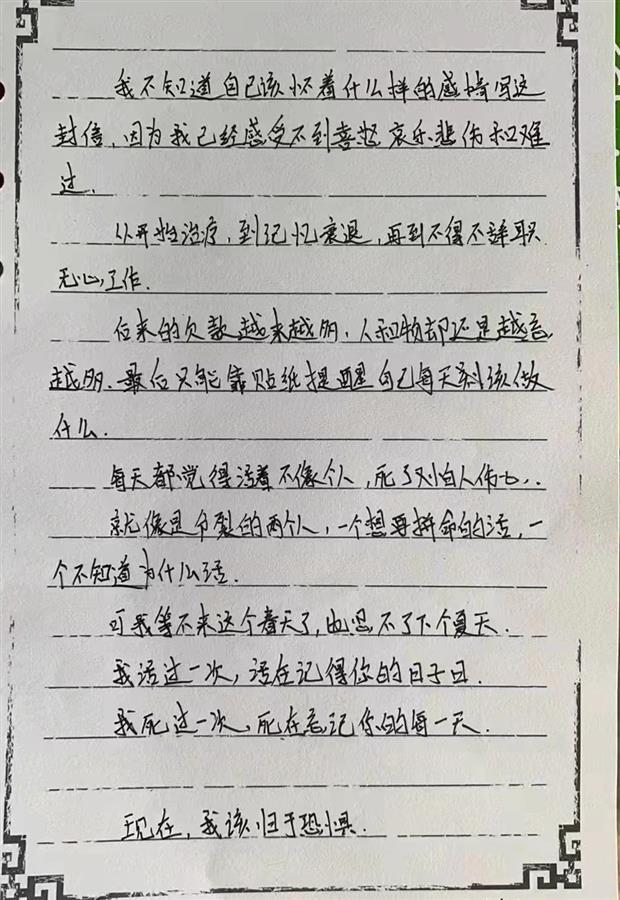 我不知道自己该怀着什么样的感情写这
封信，因为我已经感受不到喜怒哀乐悲伤和难
过.
从开性治疗，到记忆衰退，再到不得不辞职
无心工作.
后来的欠款越来越多，人和物却还是越忘
越多.最后只能靠贴纸提醒自己每天该做
什么.
每天都觉得活着不像个人，死了怕人伤心..
就像是分裂的两个人，一个想要拼命的活，一
个不知道为什么活.
可我等不来这个春天了，也见不了下个夏天.
我活过一次，活在记得你的日子日.
我死过一次，死在忘记你的每一天.
现在，我该归于恐惧.